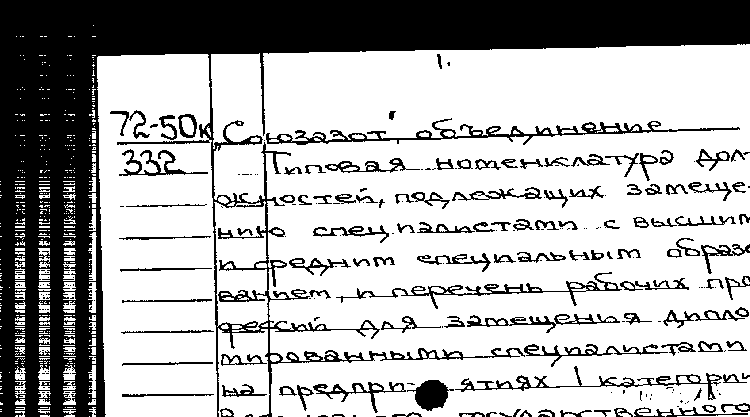 1.
72-50к „Союзазот", объединение
332 Типовая номенклатура дол-
жностей, подлежащих замеще-
нию специалистами с высшим
и средним специальным образо
ванием, и перечень рабочих про
фессий для замещения дипло
мированными специалистами
на предприятиях I категории
государственного